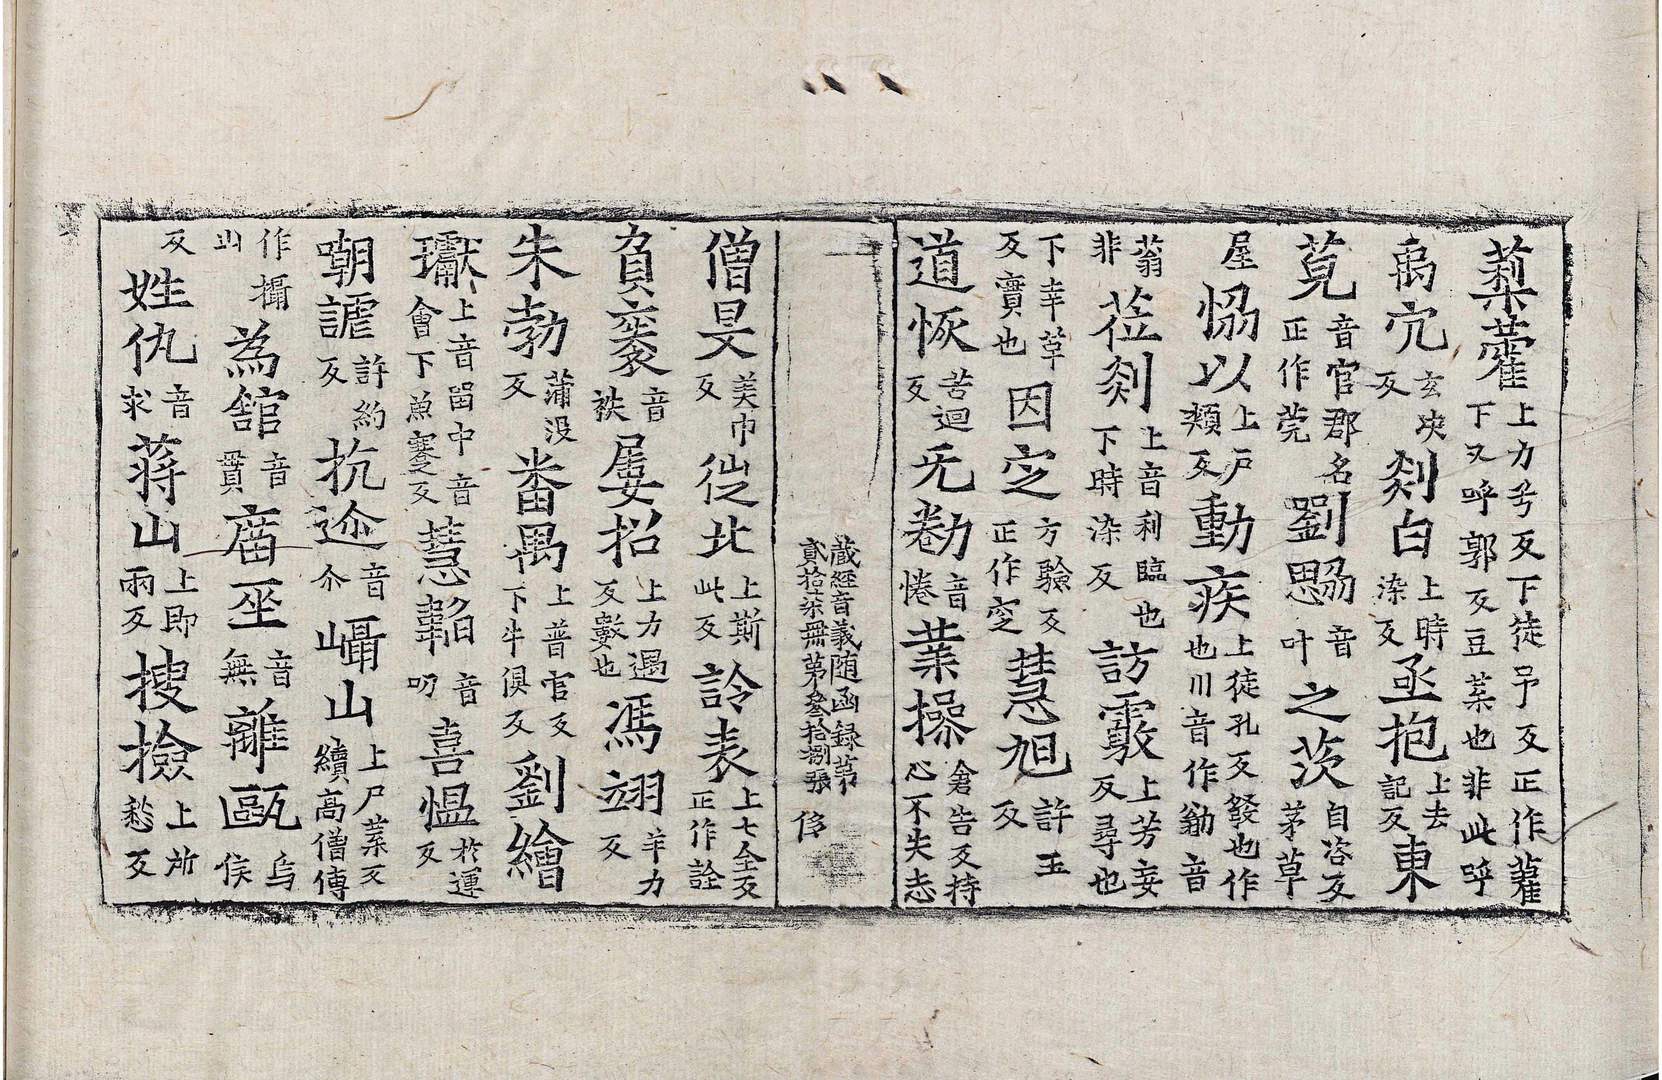 菞藿上力兮反下徒予反正作蘿下又呼郭反豆菜也非此呼
禼宂玄决反剡白上時染反亟抱上去記反東
莧音官郡名正作莞劉勰音叶之茨自咨反茅草
屋恊以上户頰反動疾上徒孔反發也作也川音作勜音
蓊非莅剡上音利臨也下時染反訪覈上芳妄反尋也
下幸草反實也因定方驗反正作窆慧旭許玉反
道恢苦迴反无勌音惓業操倉告反持心不失志
藏經音義随函録第貳拾柒無第叁拾捌張 侈
僧旻美巾反徙北上斯此反詅表上七全反正作詮
負袠音袟屢招上力遇反數也馮翊羊力反
朱勃蒲没反番禺上普官反下牛俱反劉繪
瓛上音留中音會下魚蹇反慧韜音叨喜愠於運反
嘲謔許約反抗迩音尒㠎山上尸葉反續高僧傳
作攝山為舘音貫巫音無離甌烏侯反
反姓仇音求蒋山上即兩反搜撿上所愁反